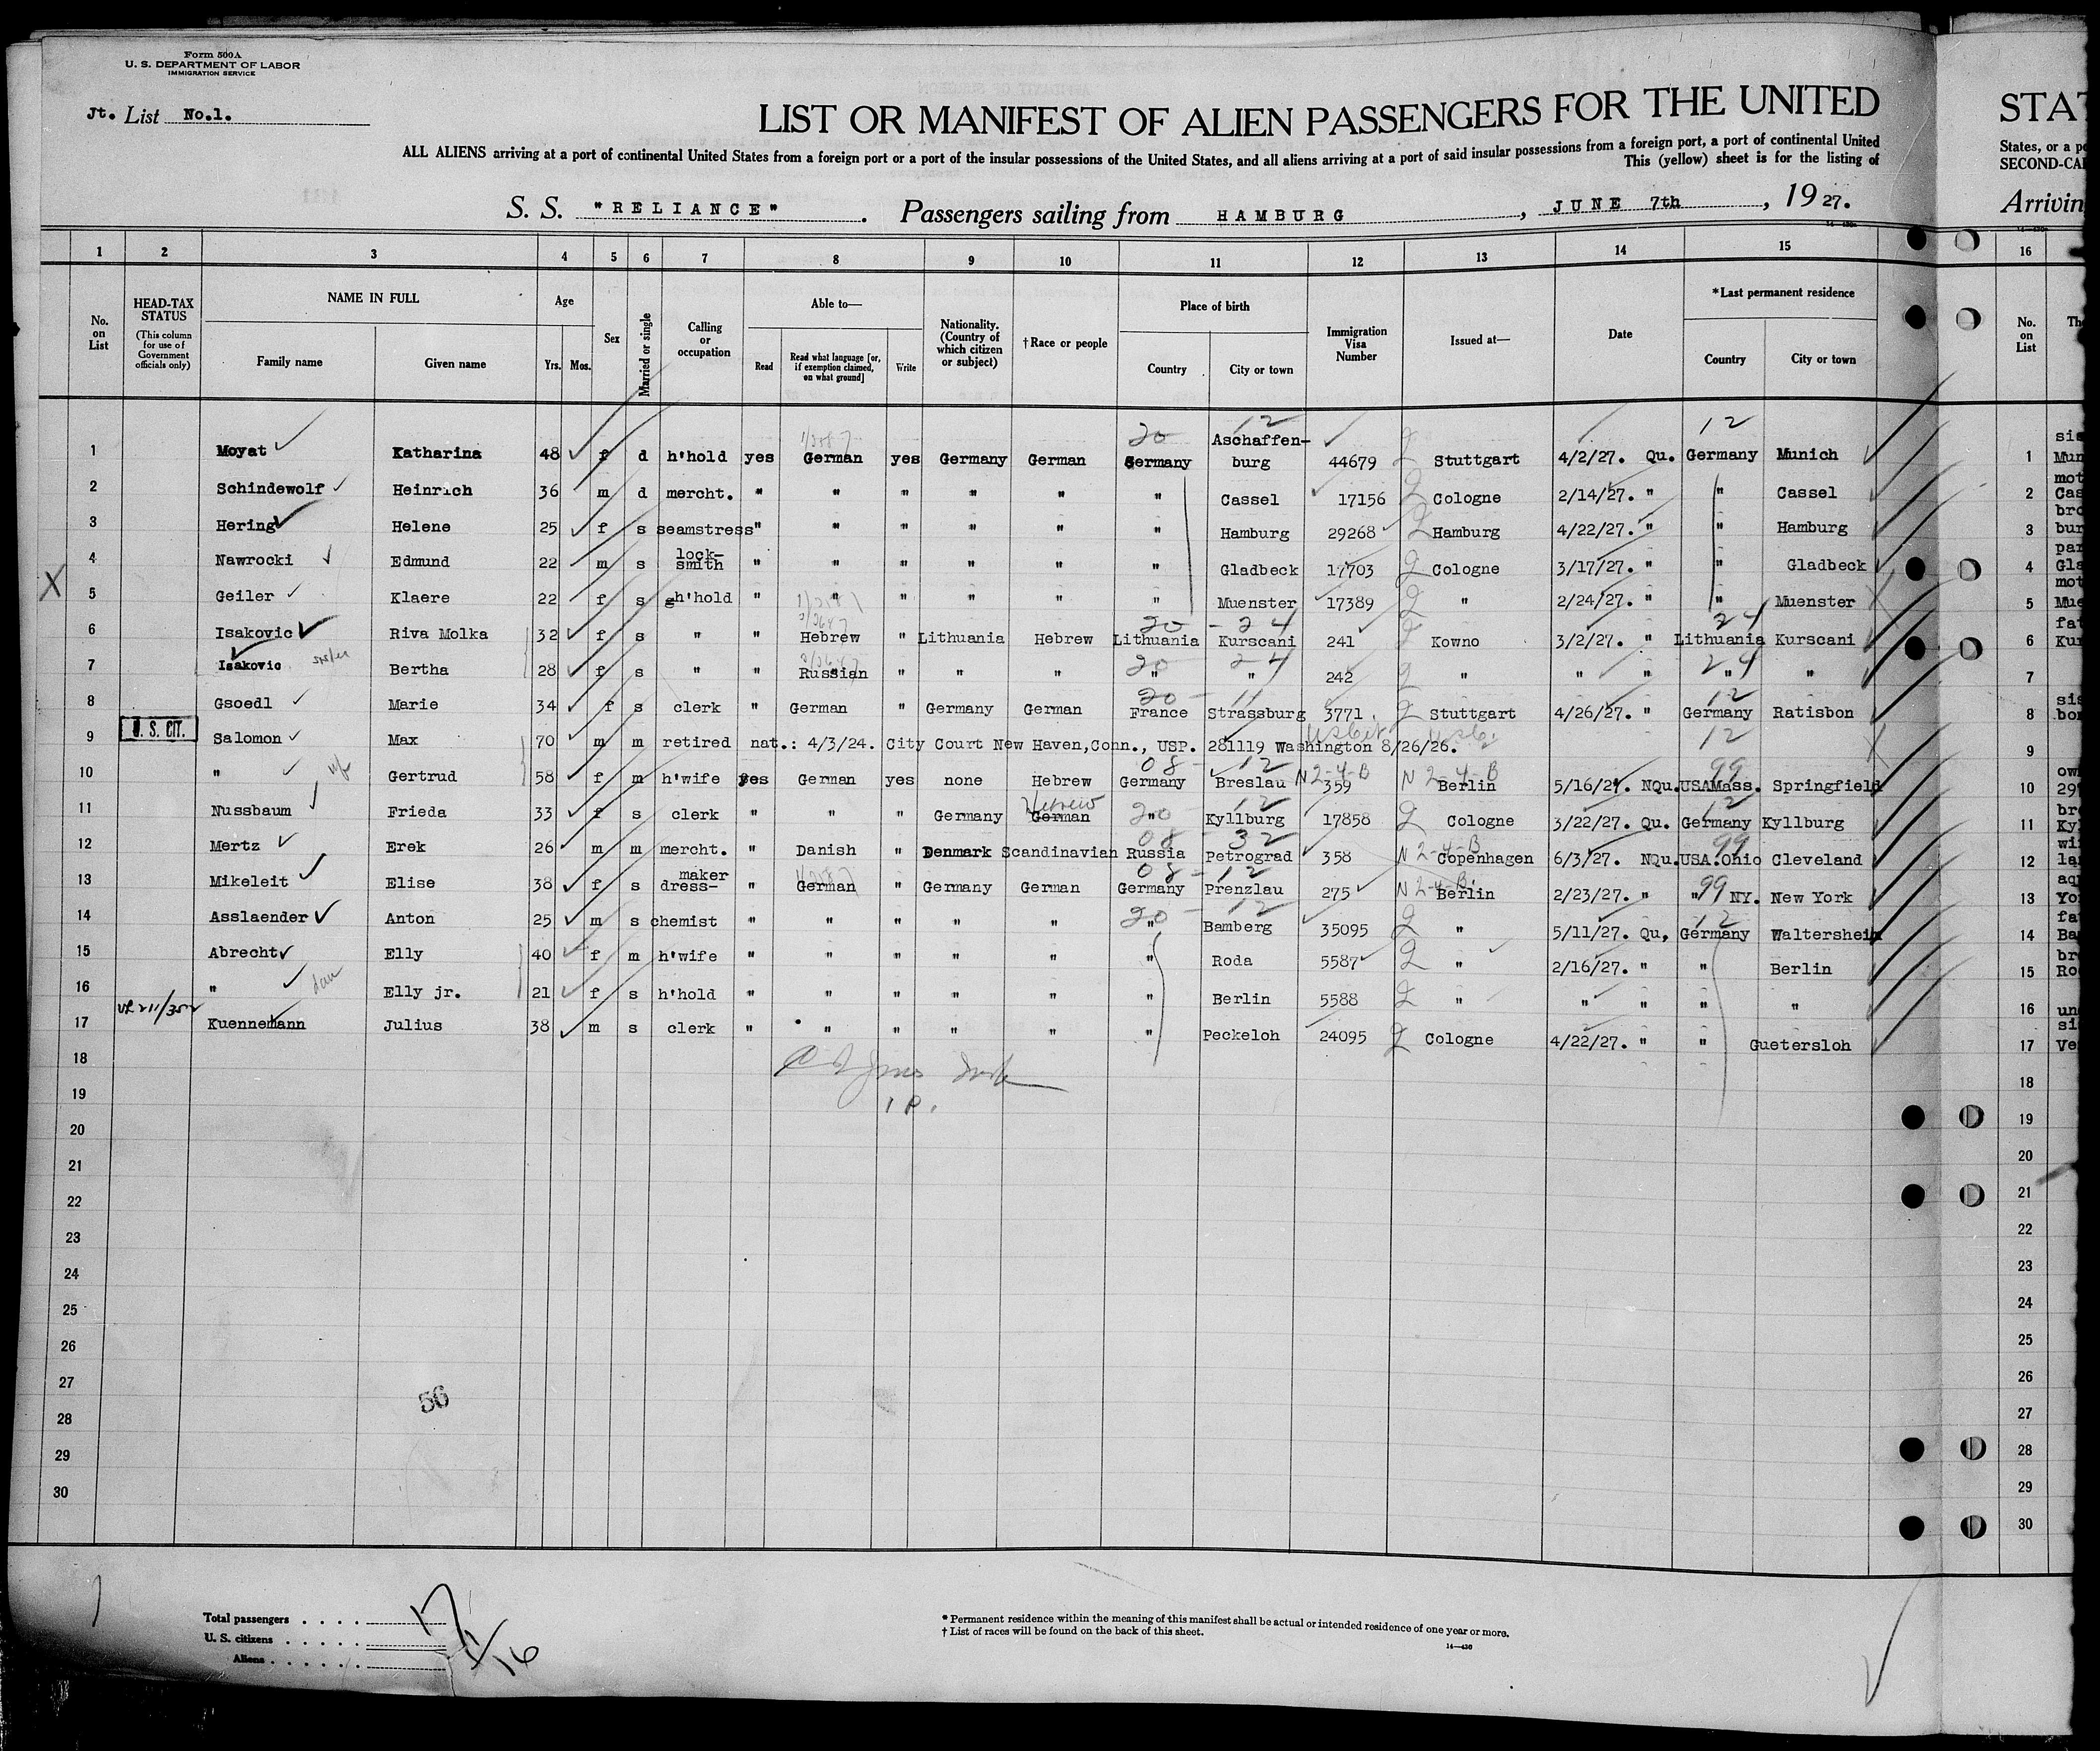 Form 500A
U. S. DEPARTMENT OF LABOR
IMMIGRATION SERVICE
Jt. List No.1.
LIST OR MANIFEST OF ALIEN PASSENGERS FOR THE UNITED
STAT
ALL ALIENS arriving at a port of continental United States from a foreign port or a port of the insular possessions of the United States, and all aliens arriving at a port of said insular possessions from a foreign port, a port of continental United
States, or a po
This (yellow) sheet is for the listing of
SECOND-CAB
S. S. "RELIANCE" . Passengers sailing from HAMBURG , JUNE 7th , 1927.
Arrivin
1 2 3 4 5 6 7 8 9 10 11 12 13 14 15 16
No. on List
HEAD-TAX STATUS (This column for use of Government officials only)
NAME IN FULL Family name Given name
Age Yrs. Mos.
Sex
Married or single
Calling or occupation
Able to— Read Read what language [or, if exemption claimed, on what ground] Write
Nationality. (Country of which citizen or subject)
†Race or people
Place of birth Country City or town
Immigration Visa Number
Issued at—
Date
*Last permanent residence Country City or town
No. on List
1 Moyat Katharina 48 f d h'hold yes German yes Germany German Germany Aschaffen-burg 44679 Stuttgart 4/2/27. Qu. Germany Munich
2 Schindewolf Heinrich 36 m d mercht. " " " " " " Cassel 17156 Cologne 2/14/27. " " Cassel
3 Hering Helene 25 f s seamstress " " " " " " Hamburg 29268 Hamburg 4/22/27. " " Hamburg
4 Nawrocki Edmund 22 m s lock-smith " " " " " " Gladbeck 17703 Cologne 3/17/27. " " Gladbeck
X 5 Geiler Klaere 22 f s h'hold " " " " " " Muenster 17389 " 2/24/27. " " Muenster
6 Isakovic Riva Molka 32 f s " " Hebrew " Lithuania Hebrew Lithuania Kurscani 241 Kowno 3/2/27. " Lithuania Kurscani
7 Isakovic sister Bertha 28 f s " " Russian " " " " " 242 " " " " "
8 Gsoedl Marie 34 f s clerk " German " Germany German France Strassburg 3771. Stuttgart 4/26/27. " Germany Ratisbon
U. S. CIT.
9 Salomon Max 70 m m retired nat.: 4/3/24. City Court New Haven,Conn., USP. 281119 Washington 8/26/26.
10 " Gertrud 58 f m h'wife yes German yes none Hebrew Germany Breslau N 2-4-B 359 N 2-4-B Berlin 5/16/27. NQu. USAMass. Springfield
11 Nussbaum Frieda 33 f s clerk " " " Germany Hebrew German " Kyllburg 17858 Cologne 3/22/27. Qu. Germany Kyllburg
12 Mertz Erek 26 m m mercht. " Danish " Denmark Scandinavian Russia Petrograd 358 N 2-4-B Copenhagen 6/3/27. NQu. USA.Ohio Cleveland
13 Mikeleit Elise 38 f s dress-maker " German " Germany German Germany Prenzlau 275 N 2-4-B Berlin 2/23/27. " " NY. New York
14 Asslaender Anton 25 m s chemist " " " " " " Bamberg 35095 " 5/11/27. Qu, Germany Waltersheim
15 Abrecht Elly 40 f m h'wife " " " " " " Roda 5587 " 2/16/27. " " Berlin
16 " dau Elly jr. 21 f s h'hold " " " " " " Berlin 5588 " " " " "
17 Kuennemann Julius 38 m s clerk " " " " " " Peckeloh 24095 Cologne 4/22/27. " " Guetersloh
18
19
20
21
22
23
24
25
26
27
28
29
30
56
Total passengers . . . . 17
U. S. citizens . . . . . 1
Aliens . . . . . . 16
* Permanent residence within the meaning of this manifest shall be actual or intended residence of one year or more.
† List of races will be found on the back of this sheet.
14—430